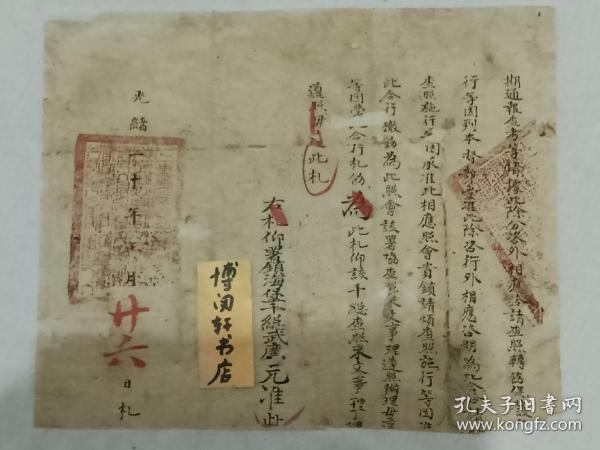 期通報查考等情據此除分咨外相應咨請查照轉飭
行等因到本督部堂准此除咨行外相應咨明為此合
查照施行等因承准此相應照會貴鎮請煩查照施行等因准
此合行檄飭為此照會該署協查照來文事理遵照辦理毋違
等因當此合行札飭為此札仰該千總查照來文事理
遵照毋此札
右札仰署鎮海堡千總武廣元准此
光緒二十年 月廿六日札
博闻轩书店
孔夫子旧书网
www.kongfz.com